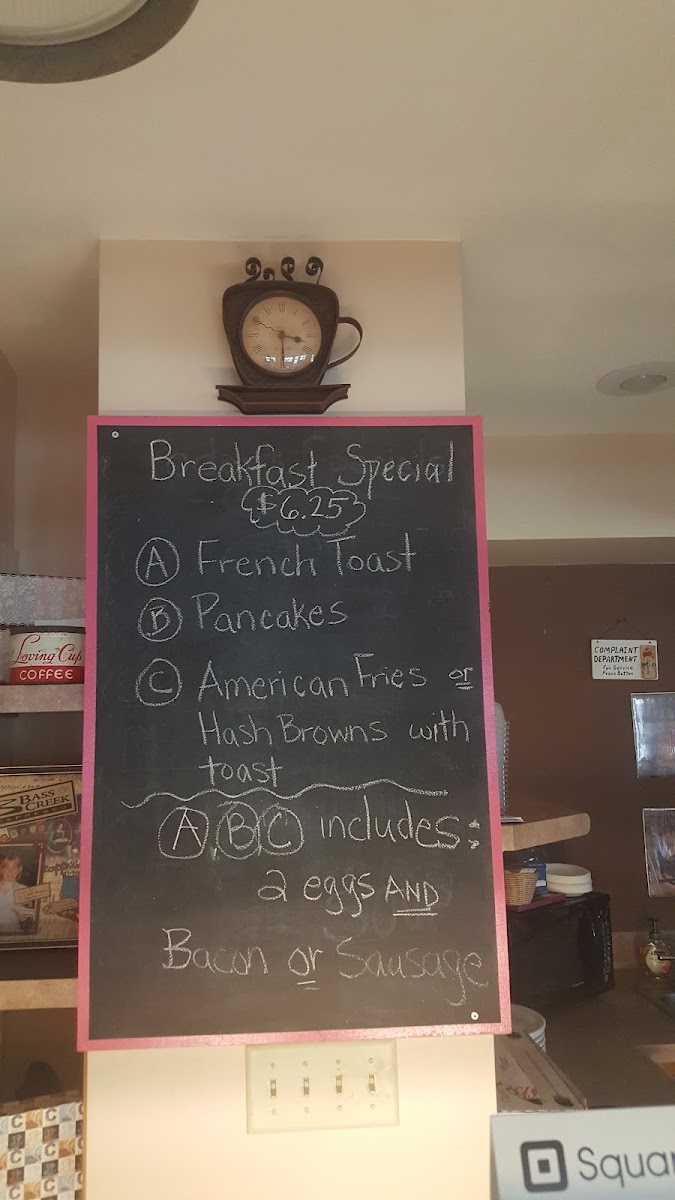 Breakfast Special
$6.25
A French Toast
B Pancakes
C American Fries or
Hash Browns with
toast
A B C includes:
2 eggs AND
Bacon or Sausage
Loving Cup
COFFEE
BASS
CREEK
COMPLAINT
DEPARTMENT
For Service
Press Button
Squar